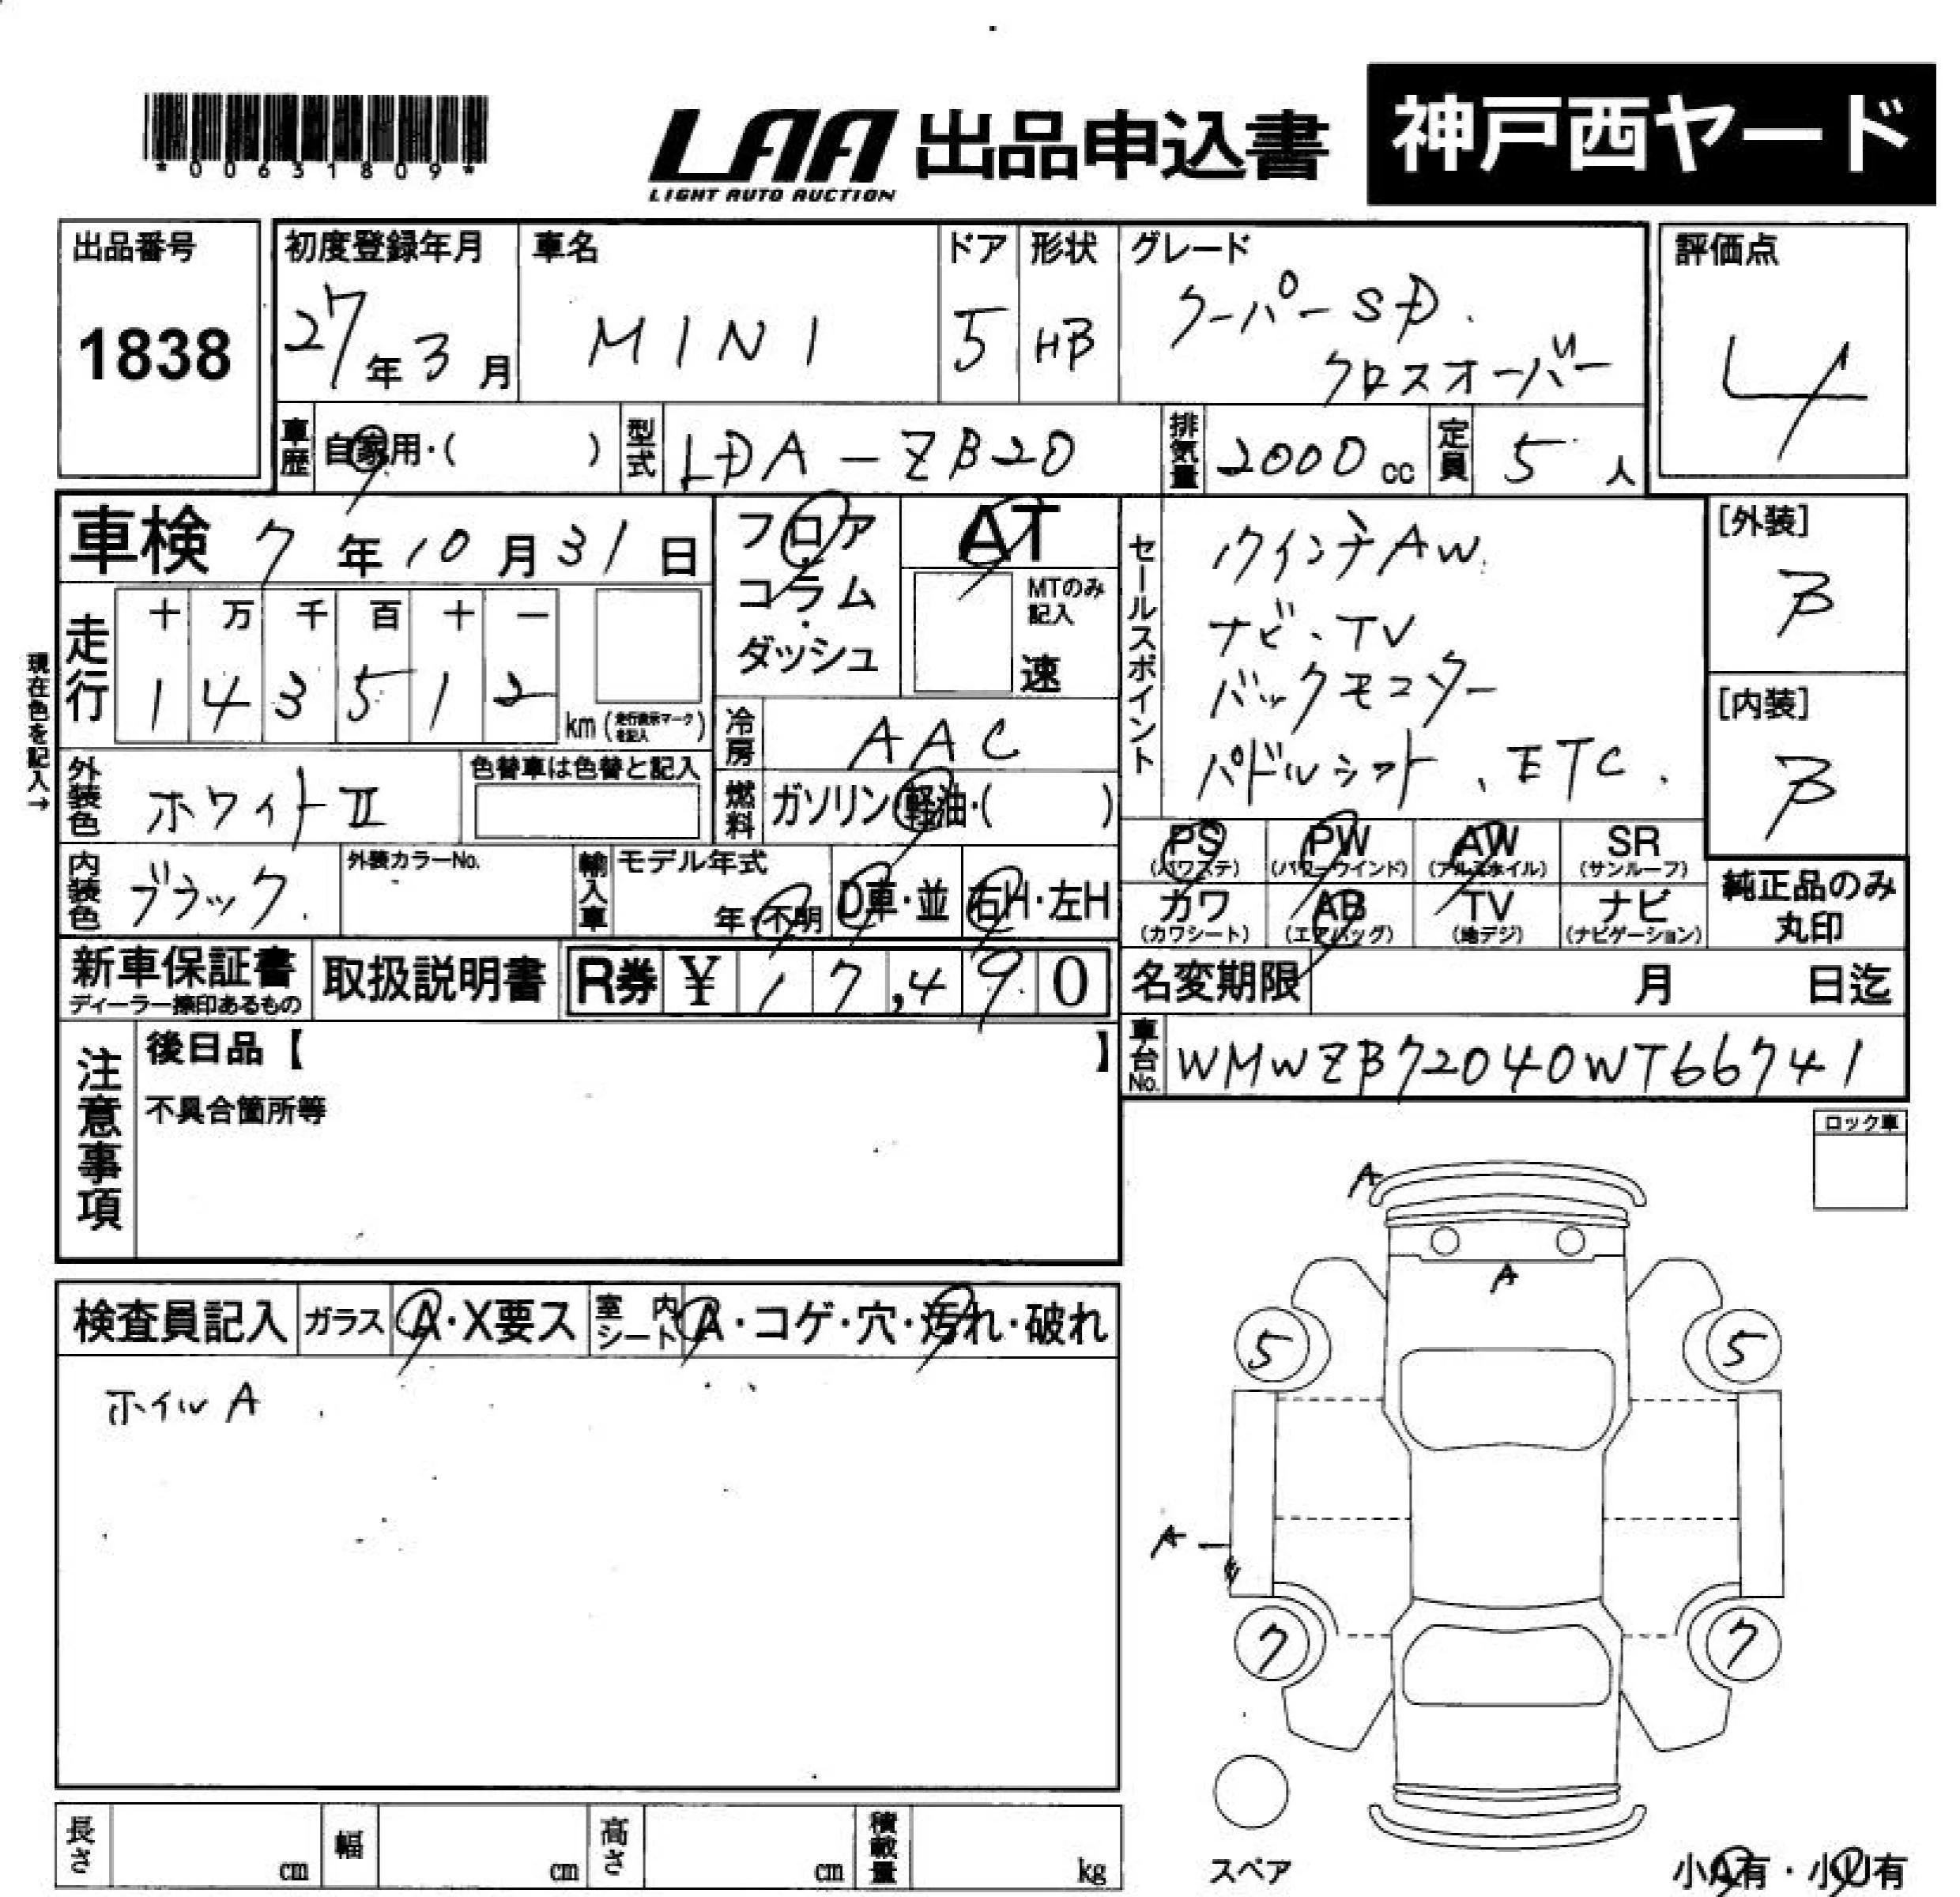 *00631809*
LAA 出品申込書 神戸西ヤード
LIGHT AUTO AUCTION
出品番号
1838
初度登録年月
27年3月
車名
MINI
ドア
5
形状
HB
グレード
クーパーSD
クロスオーバー
評価点
4
車歴 自家用・( )
型式 LDA-ZB20
排気量 2000cc
定員 5人
車検 7年10月31日
走行
十 万 千 百 十 一
1 4 3 5 1 2
km(走行表示マークを記入)
現在色を記入→
フロア・コラム・ダッシュ
AT
MTのみ記入
速
冷房 AAC
外装色 ホワイトII
色替車は色替と記入
燃料 ガソリン・軽油・( )
内装色 ブラック.
外装カラーNo.
輸入車
モデル年式
年・不明
D車・並
右H・左H
セールスポイント
17インチAW.
ナビ、TV
バックモニター
パドルシフト、ETC.
[外装]
B
[内装]
B
PS (パワステ)
PW (パワーウインド)
AW (アルミホイル)
SR (サンルーフ)
カワ (カワシート)
AB (エアバッグ)
TV (地デジ)
ナビ (ナビゲーション)
純正品のみ
丸印
新車保証書
ディーラー捺印あるもの
取扱説明書
R券 ¥17,490
名変期限 月 日迄
車台No. WMWZB72040WT66741
注意事項
後日品【 】
不具合箇所等
ロック車
検査員記入
ガラス A・X要ス
室内シート A・コゲ・穴・汚れ・破れ
ホイルA
A
A
5
5
A
7
7
スペア
長さ cm
幅 cm
高さ cm
積載量 kg
小A有・小U有